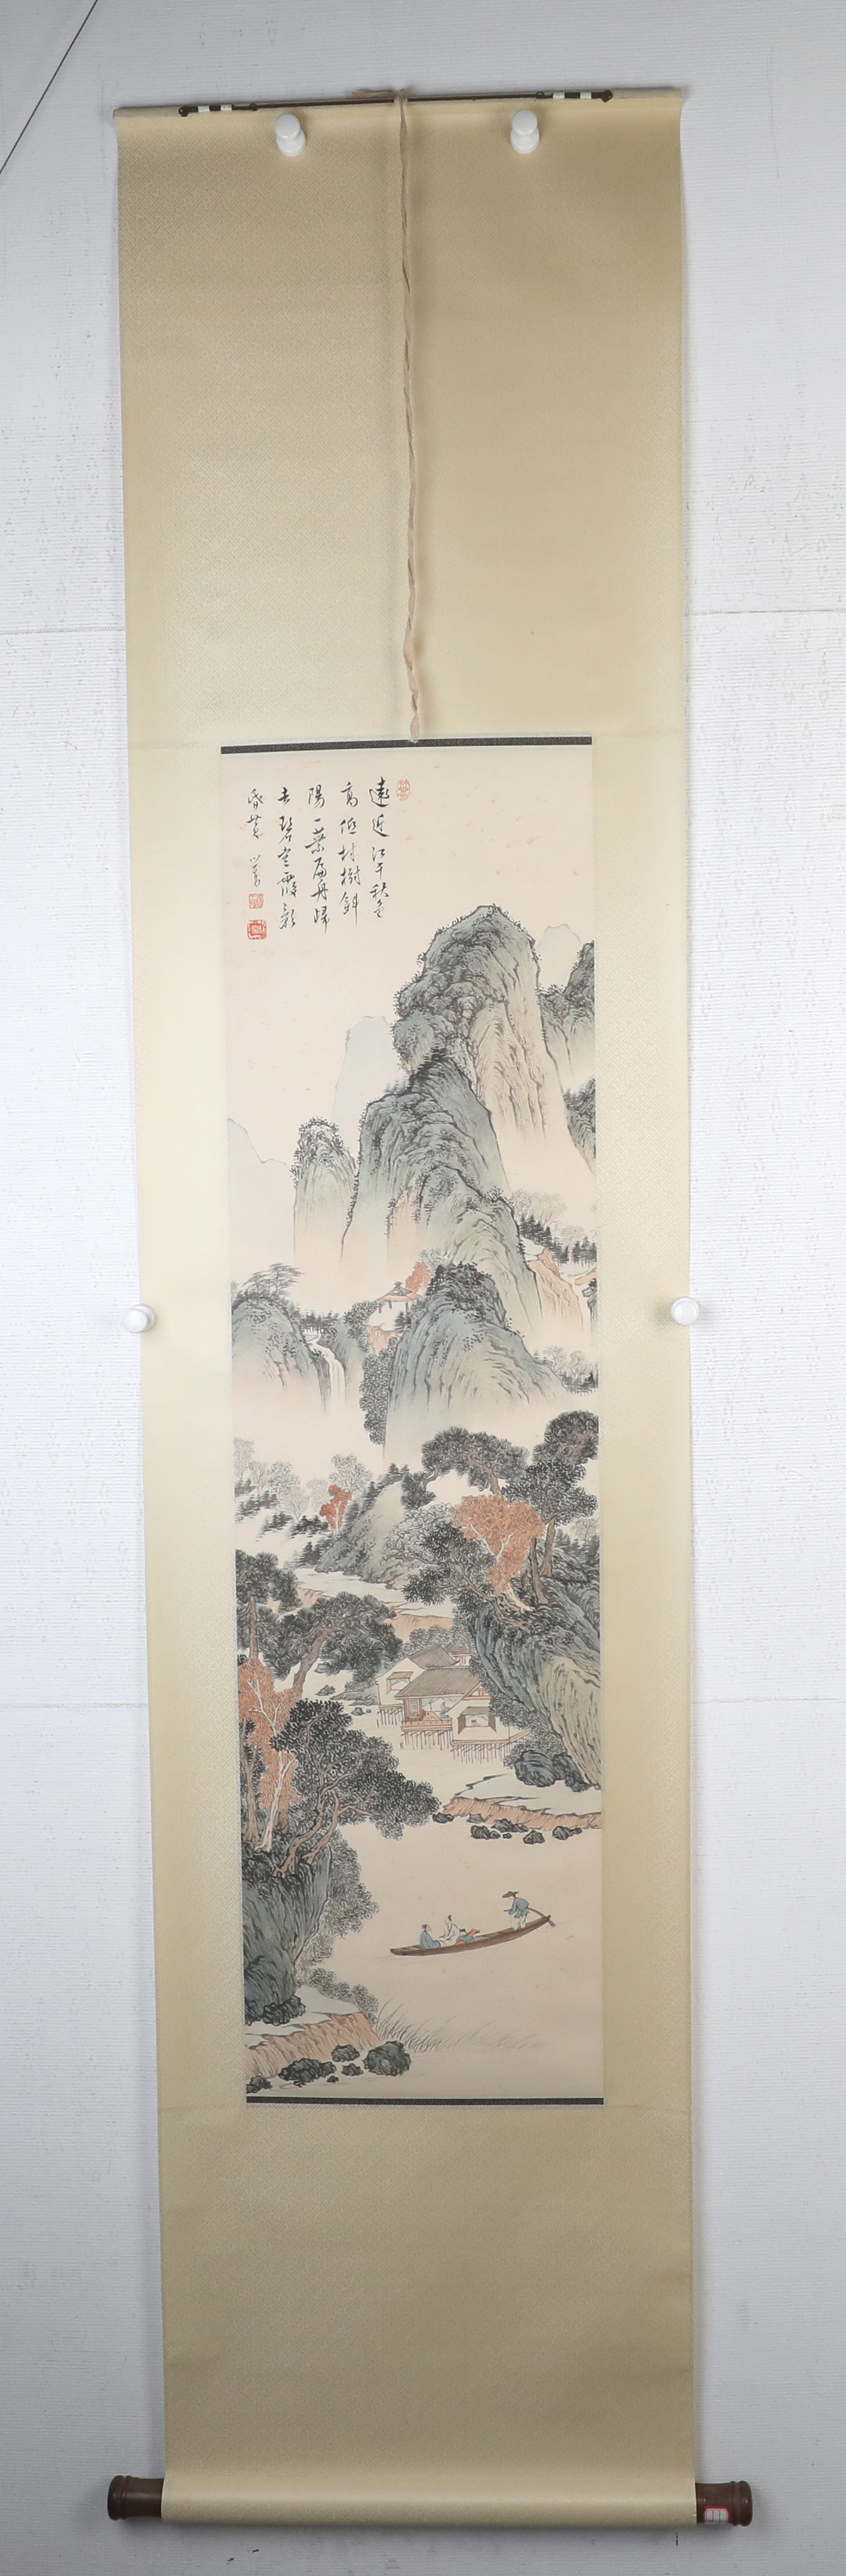 遠近江干秋色
高低村樹斜
陽一葉扁舟歸
去碧空霞影
昏黄 溥